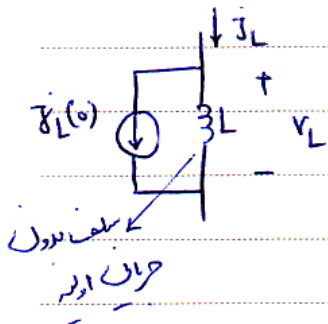 j_L
+
j_L(0)
L
v_L
−
سلف بدون
جریان اولیه